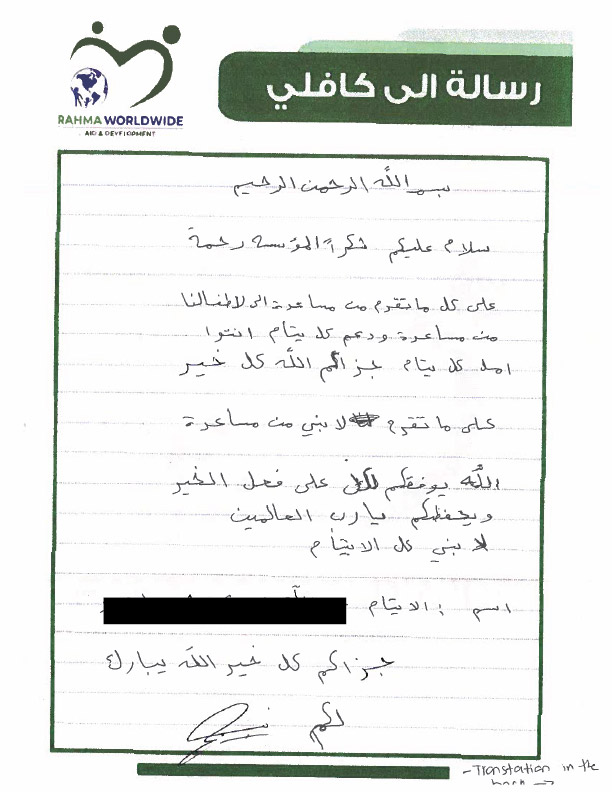 RAHMA WORLDWIDE
AID & DEVELOPMENT
رسالة الى كافلي
بسم الله الرحمن الرحيم
سلام عليكم شكراً لمؤسسه رحمة
على كل ما تقدم من مساعدة الى لاطفالنا
من مساعدة ودعم كل يتام انتوا
امل كل يتام جزاكم الله كل خير
على ما تقدم لابني من مساعدة
الله يوفقكم على فعل الخير
ويحفظكم يارب العالمين
لابني كل الايتام
اسم : الايتام
جزاكم كل خير الله يبارك
لكم
- Translation in the back →